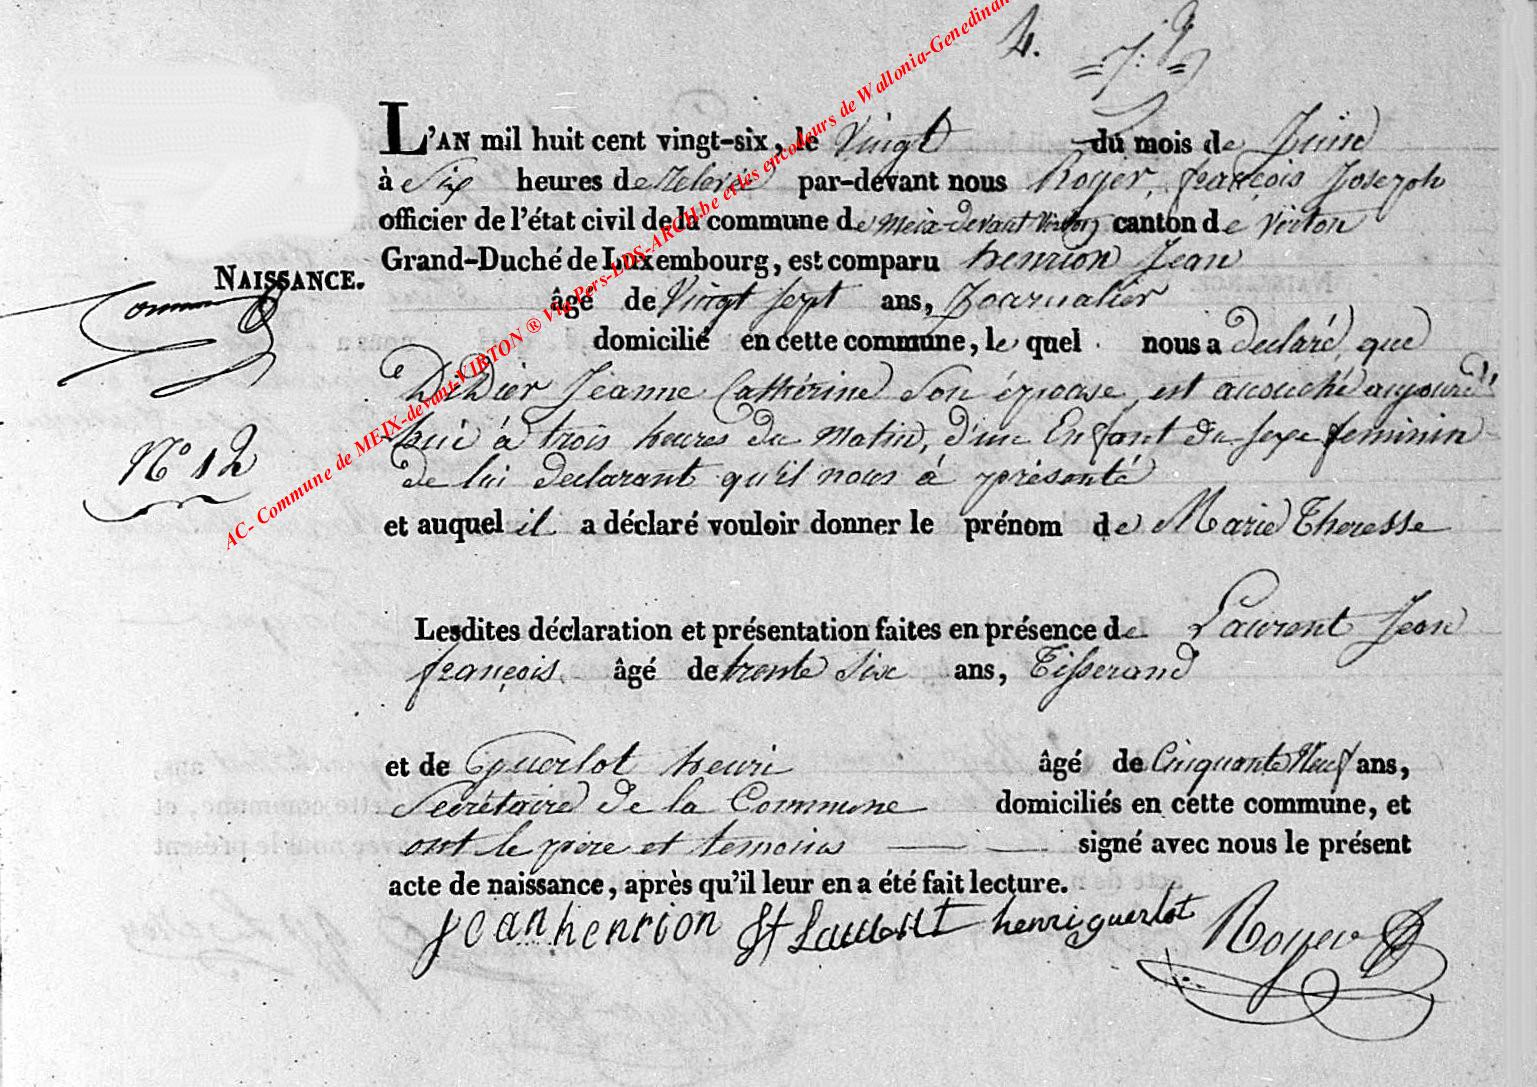 4.
L'AN mil huit cent vingt-six, le Vingt du mois de Juin
à Six heures de relevé par-devant nous Royer, françois Joseph
officier de l'état civil de la commune de Meix-devant Virton canton de Virton
NAISSANCE. Grand-Duché de Luxembourg, est comparu henrion Jean
âgé de Vingt Sept ans, Journalier
domicilié en cette commune, le quel nous a declaré, que
Didier Jeanne Cathérine Son épouse, est acouché aujourd'
hui à trois heures du Matin, d'un Enfant du Sexe feminin
N° 12 de lui declarant qu'il nous à présenté
et auquel il a déclaré vouloir donner le prénom de Marie Theresse
Lesdites déclaration et présentation faites en présence de Laurent Jean
françois, âgé de trente Six ans, Tisserand
et de Guerlot henri âgé de Cinquante Neuf ans,
Secrétaire de la Commune domiciliés en cette commune, et
ont le père et temoins signé avec nous le présent
acte de naissance, après qu'il leur en a été fait lecture.
jean henrion Jf Laurent henri guerlot Royer
AC- Commune de MEIX-devant-VIRTON ® Via Pers-LDS-ARCH.be et les encodeurs de Wallonia-Genedinan